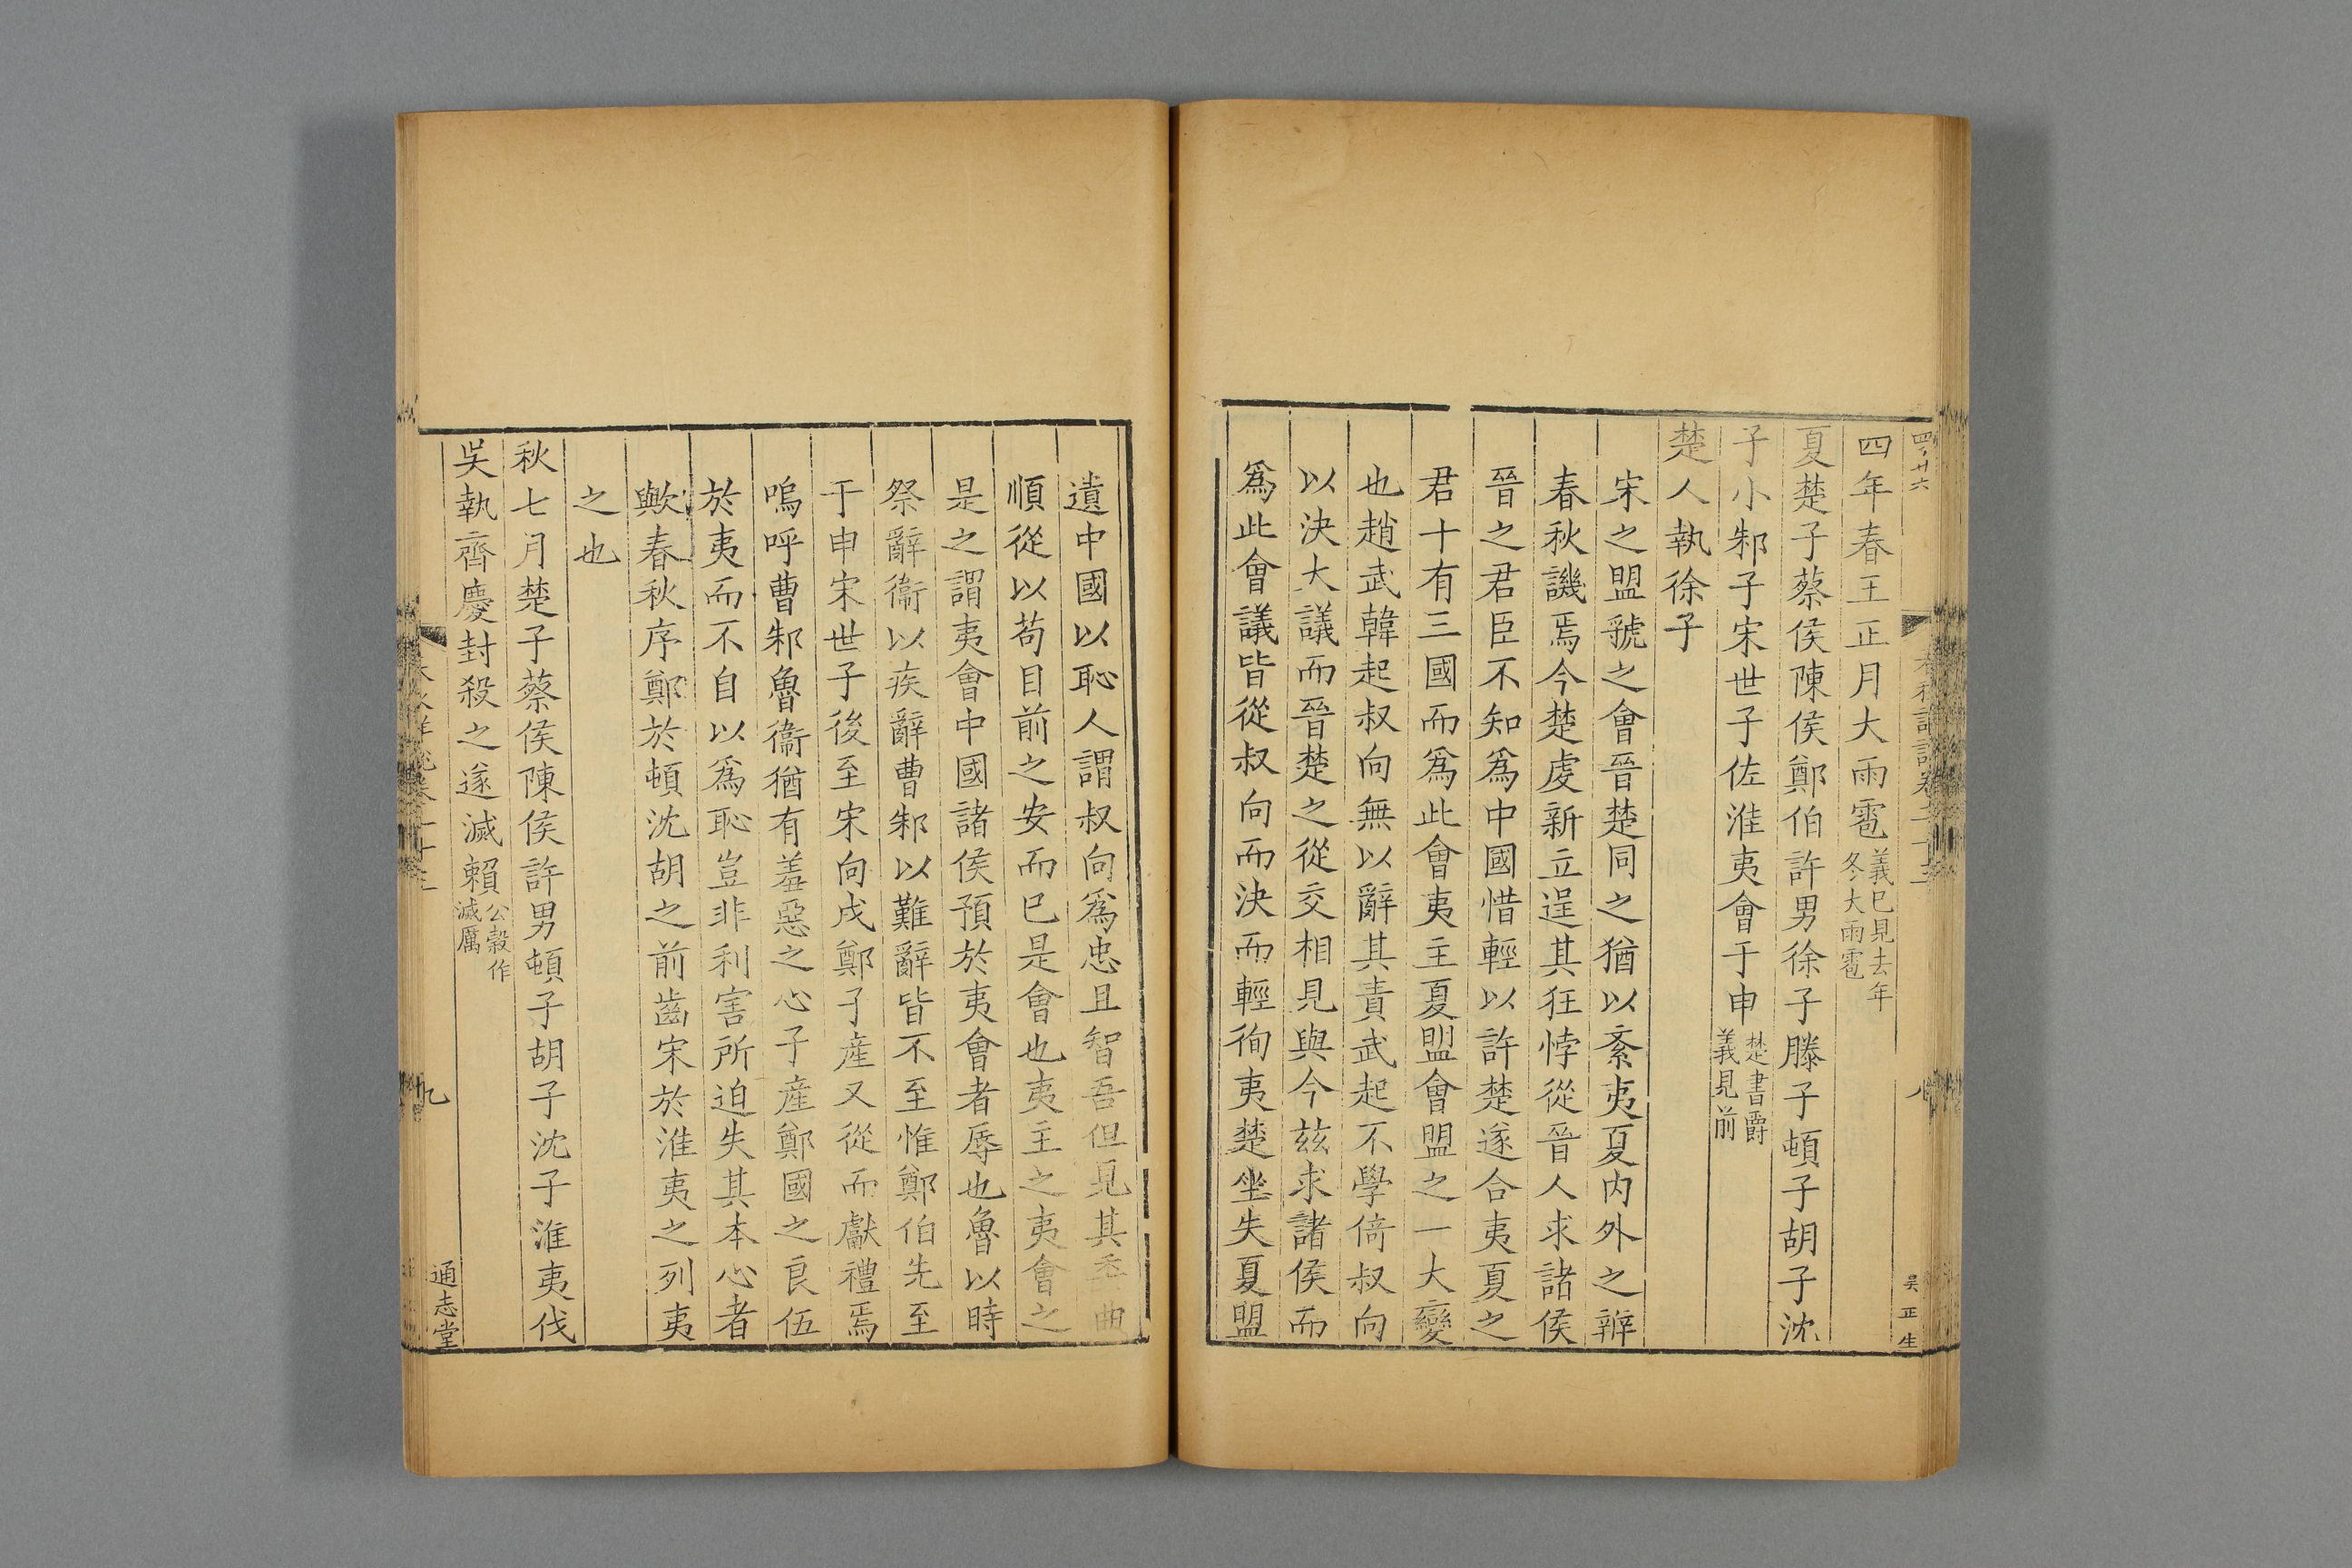 四年春王正月大雨雹義已見去年
冬大雨雹
夏楚子蔡侯陳侯鄭伯許男徐子滕子頓子胡子沈
子小邾子宋世子佐淮夷會于申楚書爵
義見前
楚人執徐子
宋之盟虢之會晉楚同之猶以紊夷夏内外之辨
春秋譏焉今楚虔新立逞其狂悖從晉人求諸侯
晉之君臣不知爲中國惜輕以許楚遂合夷夏之
君十有三國而爲此會夷主夏盟會盟之一大變
也趙武韓起叔向無以辭其責武起不學倚叔向
以決大議而晉楚之從交相見與今兹求諸侯而
爲此會議皆從叔向而決而輕徇夷楚坐失夏盟
吳正生
遺中國以恥人謂叔向爲忠且智吾但見其委曲
順從以茍目前之安而已是會也夷主之夷會之
是之謂夷會中國諸侯預於夷會者辱也魯以時
祭辭衞以疾辭曹邾以難辭皆不至惟鄭伯先至
于申宋世子後至宋向戌鄭子產又從而獻禮焉
嗚呼曹邾魯衞猶有羞惡之心子產鄭國之良伍
於夷而不自以爲恥豈非利害所迫失其本心者
歟春秋序鄭於頓沈胡之前齒宋於淮夷之列夷
之也
秋七月楚子蔡侯陳侯許男頓子胡子沈子淮夷伐
吳執齊慶封殺之遂滅賴公穀作
滅厲
九
通志堂